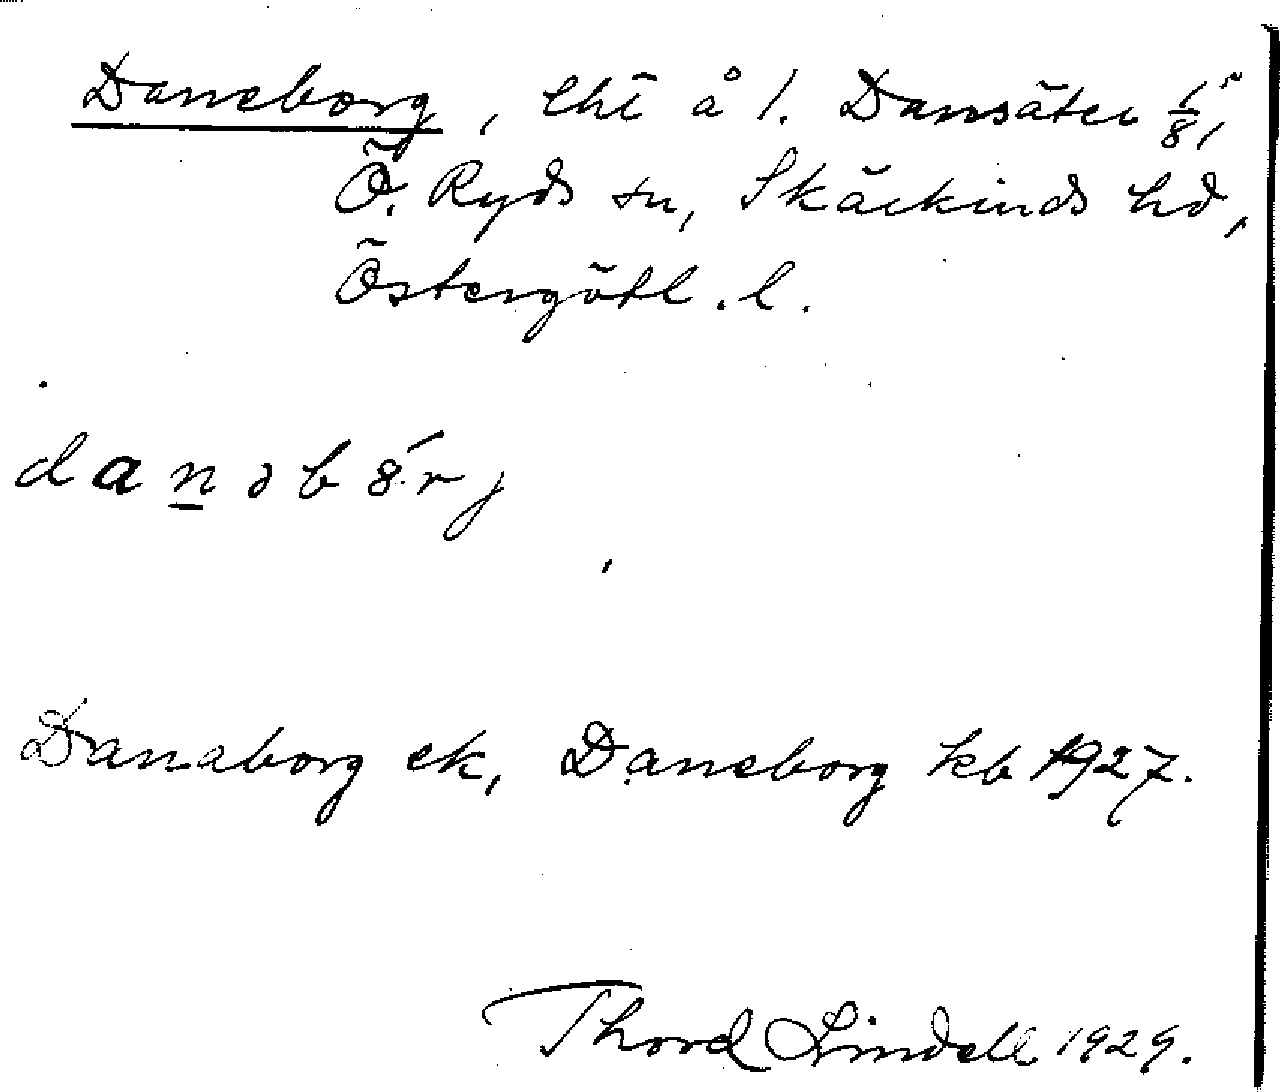 Daneborg, lht å 1. Dansäter 1/8,
Ö. Ryds sn, Skärkinds hd,
Östergötl. l.
danəb8́rj
Danaborg ek, Daneborg kb 1927.
Thord Lindell 1929.